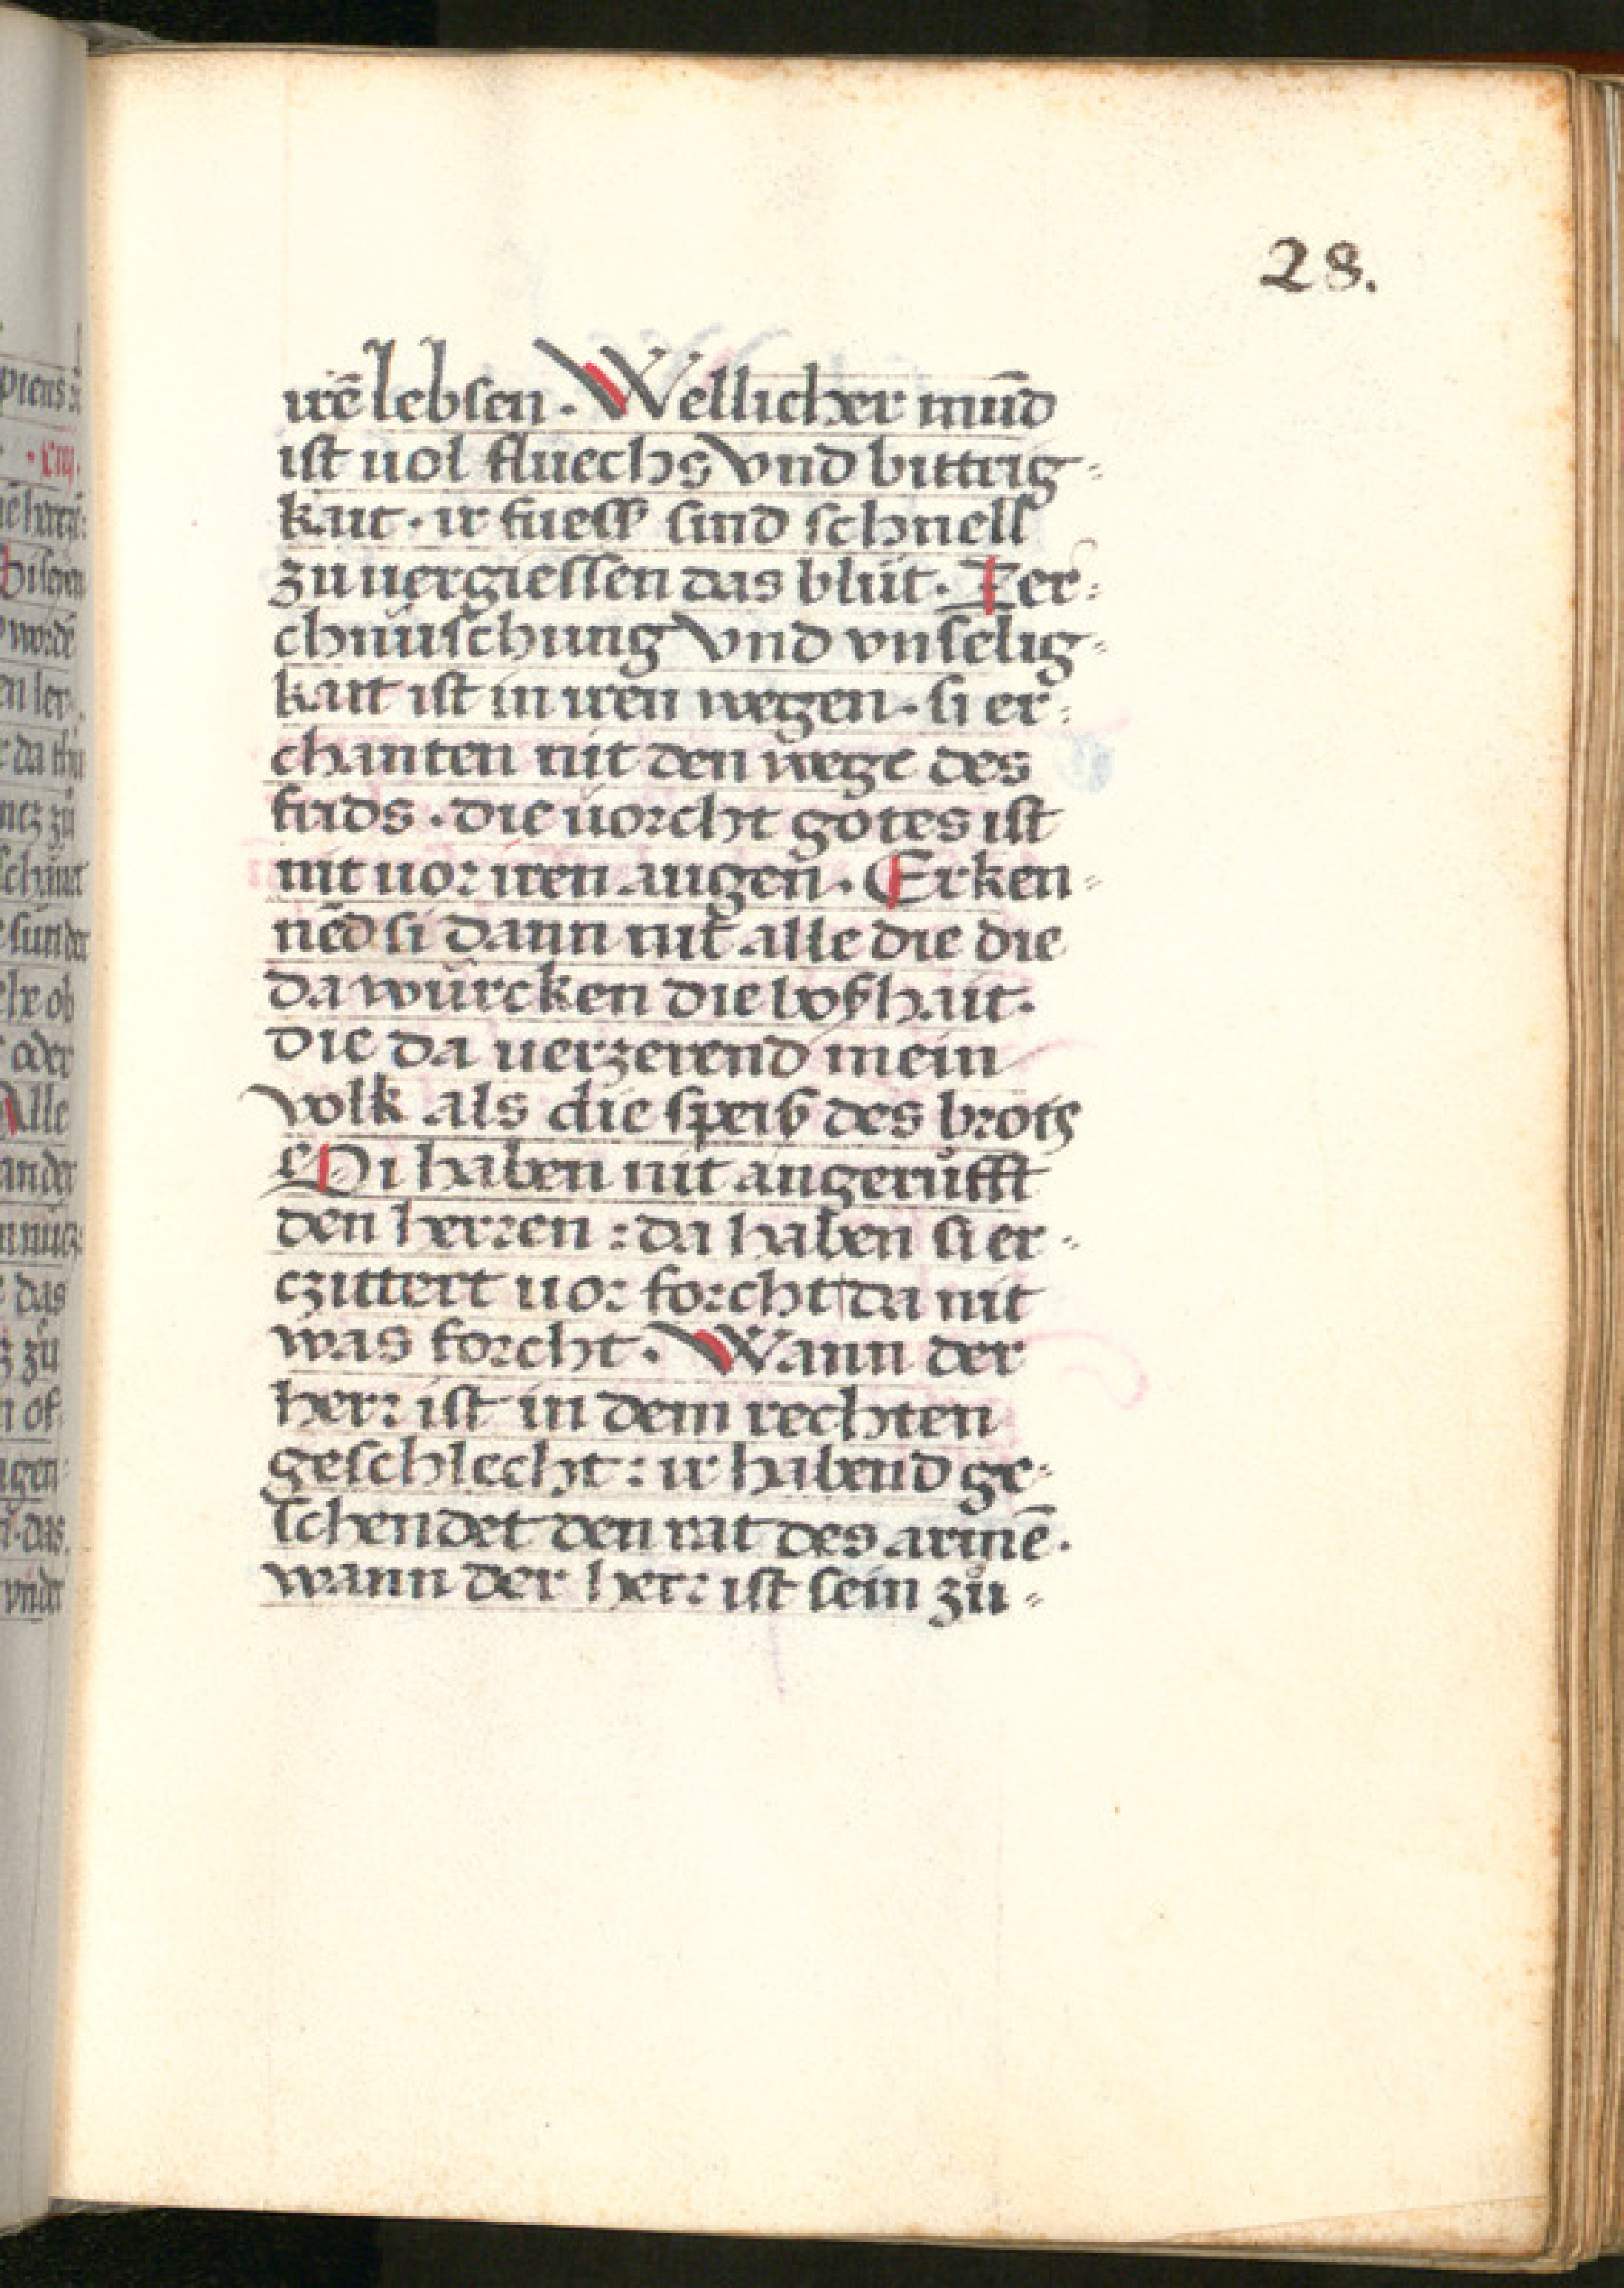 28.
irē lebsen. Wellicher mūd
ist uol fluechs vnd bittrig⸗
kait. ir fuess sind schnell
zu uergiessen das blůt. Zer⸗
chnüschung vnd vnselig⸗
kait ist in iren wegen. si er⸗
chanten nit den wege des
frids. die uorcht gotes ist
nit uor iren augen. Erken⸗
nēd si dann nit alle die die
da würcken die boßhait.
die da uerzerend mein
volk als die speiß des brots
Si haben nit angerůfft
den herren : da haben si er⸗
czittert uor forcht da nit
was forcht. Wann der
herr ist in dem rechten
geschlecht : ir habend ge⸗
schendet den rat des armē.
wann der herr ist sein zů⸗